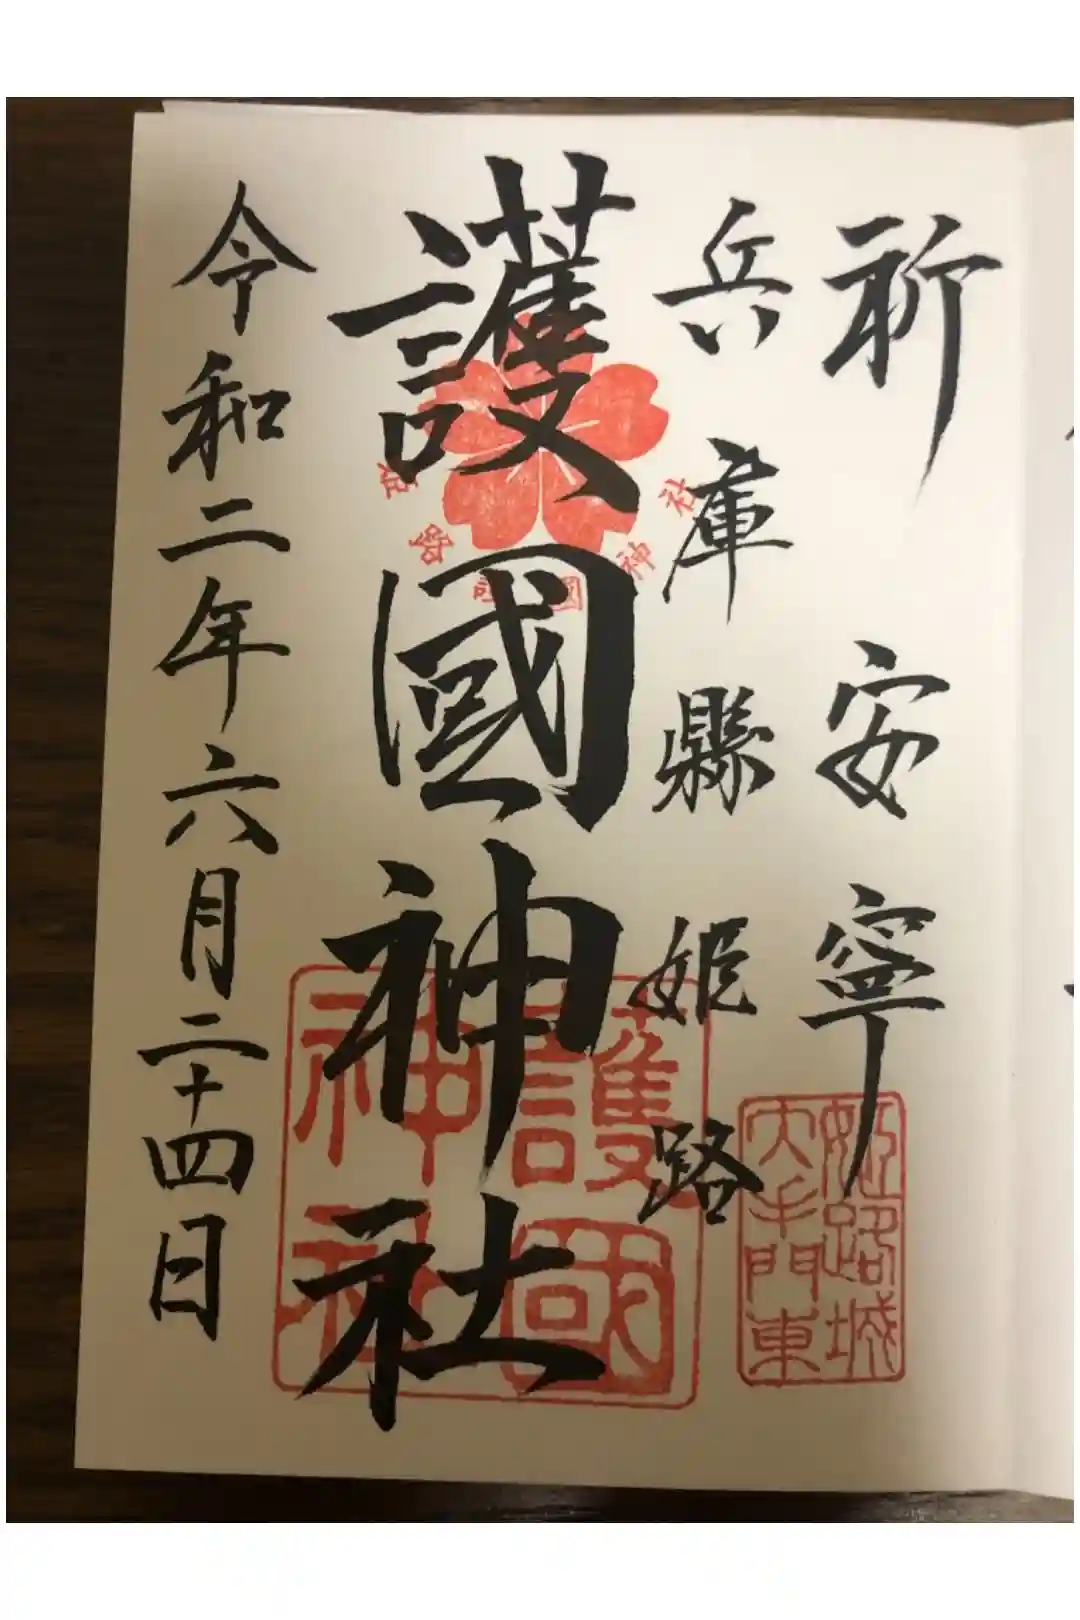 祈 安寧
兵庫縣姫路
護國神社
令和二年六月二十四日
姫路護國神社
護國神社
姫路城
大手門東